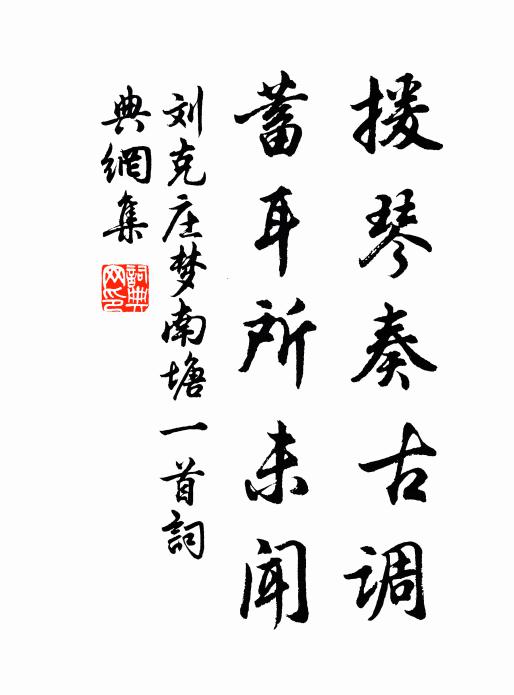 援琴奏古调
蓄耳所未闻
刘克庄梦南塘一首詞
典網集
詞典网印